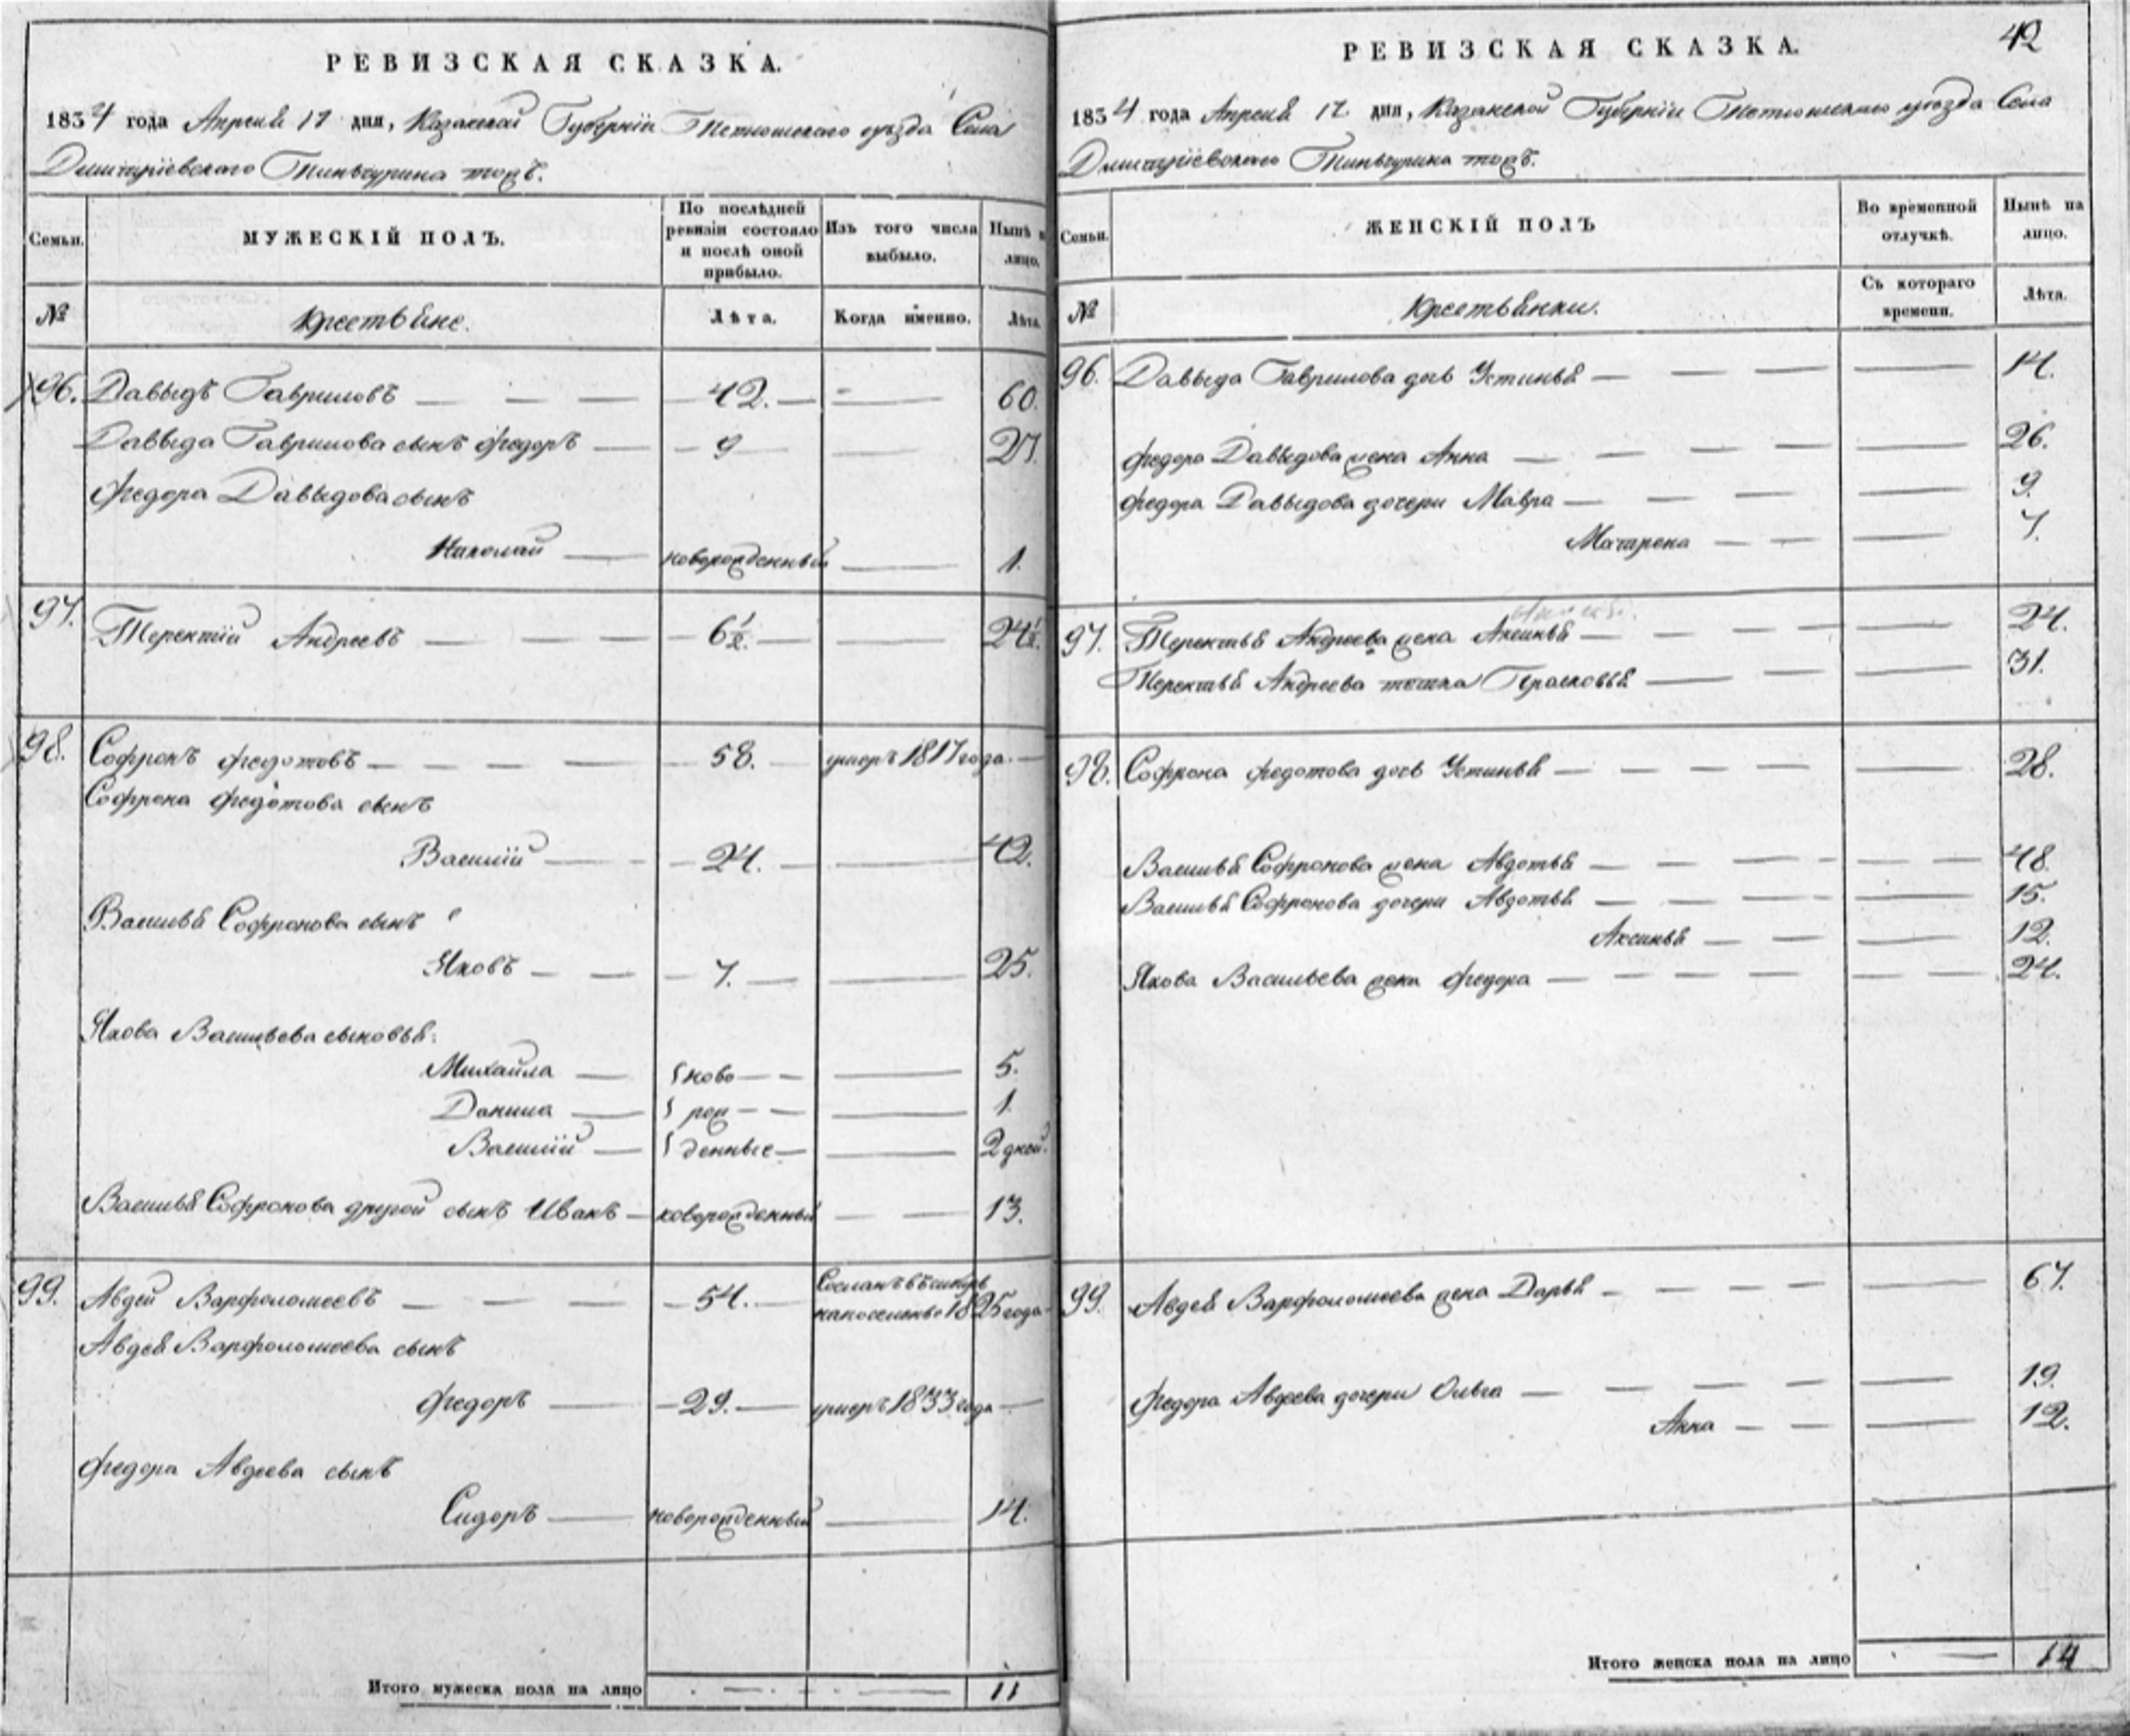 РЕВИЗСКАЯ СКАЗКА.
1834 года Апреля 17 дня, Казанской Губерніи Тетюшскаго уѣзда Села
Дмитріевскаго Тинчурина тожъ.
Семьи.
МУЖЕСКІЙ ПОЛЪ.
По послѣдней ревизіи состояло и послѣ оной прибыло.
Изъ того числа выбыло.
Нынѣ н лицо.
№
Крестьяне.
Лѣта.
Когда именно.
Лѣта
96. Давыдъ Гавриловъ — 42. — 60.
Давыда Гаврилова сынъ Федоръ — 9 — 27.
Федора Давыдова сынъ
Николай — новорожденный — 1.
97. Терентій Андреевъ — 6½. — 24½.
98. Софронъ Федотовъ — 58. умеръ 1817 года —
Софрона Федотова сынъ
Василій — 24. — 42.
Василья Софронова сынъ
Яковъ — 7. — 25.
Якова Васильева сыновья:
Михайла — ново — 5.
Данила — рож — 1
Василій — денные — 2 дней.
Василья Софронова другой сынъ Иванъ — новорожденный — 13.
99. Авдей Варфоломеевъ — 54. — Сосланъ въ сибирь
на поселенье 1825 года —
Авдея Варфоломеева сынъ
Федоръ — 29. — умеръ 1833 года —
Федора Авдеева сынъ
Сидоръ — новорожденный — 14.
Итого мужеска пола на лицо — 11
42
РЕВИЗСКАЯ СКАЗКА.
1834 года Апреля 17 дня, Казанской Губерніи Тетюшскаго уѣзда Села
Дмитріевскаго Тинчурина тожъ.
Семьи.
ЖЕНСКІЙ ПОЛЪ
Во временной отлучкѣ.
Нынѣ на лицо.
№
Крестьянки.
Съ котораго времени.
Лѣта.
96. Давыда Гаврилова дочь Устинья — 14.
Федора Давыдова жена Анна — 26.
Федора Давыдова дочери Мавра — 9.
Матрена — 7.
97. Терентья Андреева жена Аксинья — 24.
Терентья Андреева тетка Прасковья — 31.
98. Софрона Федотова дочь Устинья — 28.
Василья Софронова жена Авдотья — 48.
Василья Софронова дочери Авдотья — 15.
Аксинья — 12.
Якова Васильева жена Федора — 24.
99. Авдея Варфоломеева жена Дарья — 67.
Федора Авдеева дочери Ольга — 19.
Анна — 12.
Итого женска пола на лицо — 14